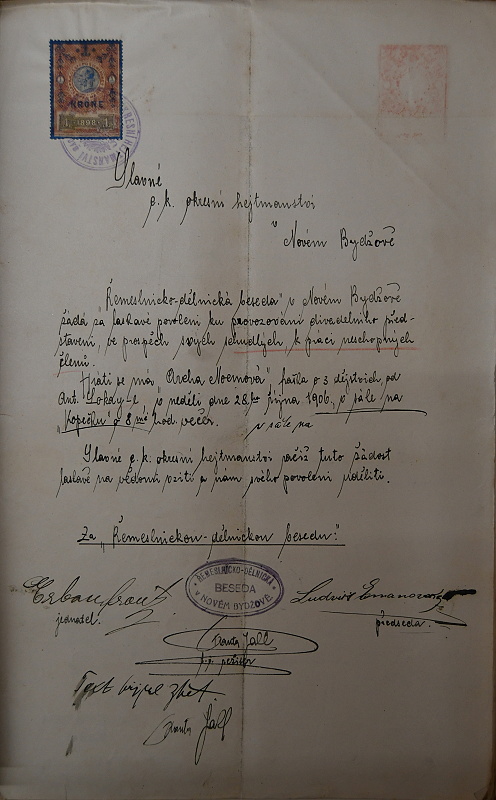 1
KRONE
1 1898 1
Slavné
c. k. okresní hejtmanství
v
Novém Bydžově
„Řemeslnicko-dělnická beseda" v Novém Bydžově
žádá za laskavé povolení ku provozování divadelního před-
stavení, ve prospěch svých schudlých, k práci neschopných
členů.
Hráti se má „Archa Noemova", fraška o 3 dějstvích, od
Ant. Lokay-e, v neděli dne 28. ho října 1906, v sále na
„Kopečku" o 8 mé hod. večer.
v sále na
Slavné c. k. okresní hejtmanství račiž tuto žádost
laskavě na vědomí vzíti a nám svého povolení uděliti.
Za „Řemeslnickou-dělnickou besedu":
ŘEMESLNICKO-DĚLNICKÁ
BESEDA
v NOVÉM BYDŽOVĚ
jednatel.
Ludvík
předseda.
Franta Jall
režisér
Text
zpět
Franta Jall